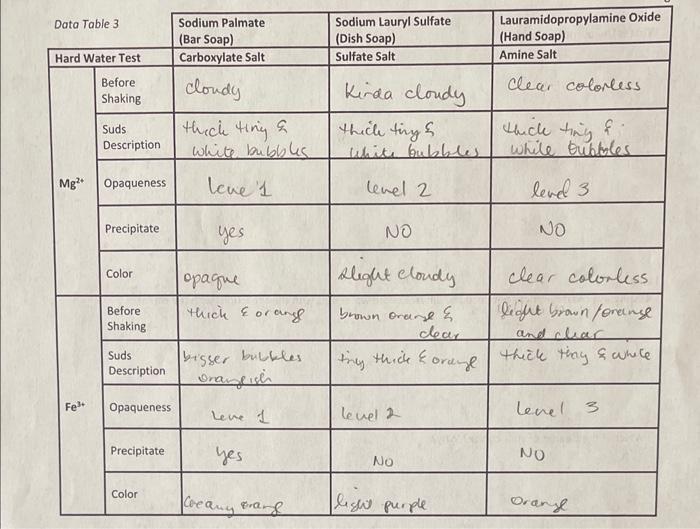 Data Table 3
Sodium Palmate
(Bar Soap)
Sodium Lauryl Sulfate
(Dish Soap)
Lauramidopropylamine Oxide
(Hand Soap)
Hard Water Test
Carboxylate Salt
Sulfate Salt
Amine Salt
Mg2+
Before
Shaking
cloudy
Kinda cloudy
clear colorless
Suds
Description
thick tiny &
white bubbles
thick tiny &
white bubbles
thick tiny &
white bubbles
Opaqueness
level 1
level 2
level 3
Precipitate
yes
NO
NO
Color
opaque
slight cloudy
clear colorless
Fe3+
Before
Shaking
thick & orange
brown orange &
clear
light brown/orange
and clear
Suds
Description
bigger bubbles
orangeish
tiny thick & orange
thick tiny & white
Opaqueness
level 1
level 2
level 3
Precipitate
yes
NO
NO
Color
creamy orange
light purple
orange